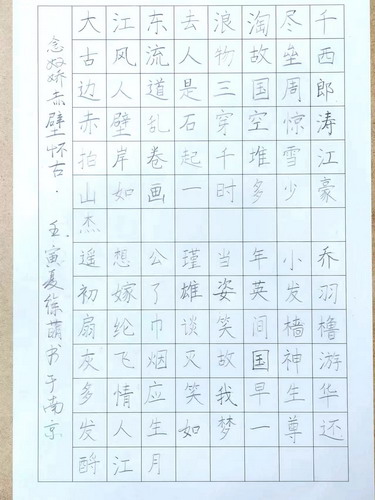 大江东去浪淘尽千
古风流人物故垒西
边人道是三国周郎
赤壁乱石穿空惊涛
拍岸卷起千堆雪江
山如画一时多少豪
杰
遥想公瑾当年小乔
初嫁了雄姿英发羽
扇纶巾谈笑间樯橹
灰飞烟灭故国神游
多情应笑我早生华
发人生如梦一尊还
酹江月
念奴娇赤壁怀古. 壬寅夏徐萌书于南京